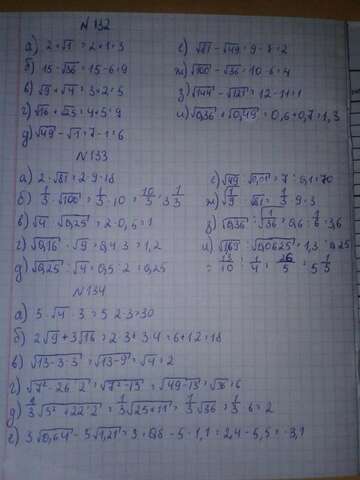 N 132
а) 2 + √1 = 2 + 1 = 3
б) 15 - √36 = 15 - 6 = 9
в) √9 + √4 = 3 + 2 = 5
г) √16 + √25 = 4 + 5 = 9
д) √49 - √1 = 7 - 1 = 6
е) √81 - √49 = 9 - 7 = 2
ж) √100 - √36 = 10 - 6 = 4
з) √144 - √121 = 12 - 11 = 1
и) √0,36 + √0,49 = 0,6 + 0,7 = 1,3
N 133
а) 2 · √81 = 2 · 9 = 18
б) 1/3 · √100 = 1/3 · 10 = 10/3 = 3 1/3
в) √4 · √0,25 = 2 · 0,5 = 1
г) √0,16 · √9 = 0,4 · 3 = 1,2
д) √0,25 : √4 = 0,5 : 2 = 0,25
е) √49 : √0,01 = 7 : 0,1 = 70
ж) √1/9 · √81 = 1/3 · 9 = 3
з) √0,36 : √1/36 = 0,6 : 1/6 = 3,6
и) √169 : √0,0625 = 1,3 : 0,25
= 13/10 : 1/4 = 26/5 = 5 1/5
N 134
а) 5 · √4 · 3 = 5 · 2 · 3 = 30
б) 2√9 + 3√16 = 2 · 3 + 3 · 4 = 6 + 12 = 18
в) √13 - 3 · 3 = √13 - 9 = √4 = 2
г) √7² - 26 : 2 = √7² - 13 = √49 - 13 = √36 = 6
д) 1/3 √5² + 22 : 2 = 1/3 √25 + 11 = 1/3 √36 = 1/3 · 6 = 2
е) 3√0,64 - 5√1,21 = 3 · 0,8 - 5 · 1,1 = 2,4 - 5,5 = -3,1